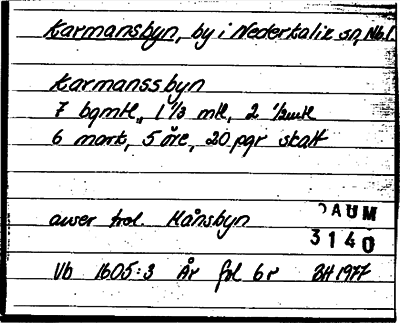 Karmansbyn, by i Nederkalix sn, Nb.l.
Karmanssbyn
7 bgmtl., 1 1/3 mtl, 2 1/2 mtl
6 mark, 5 öre, 20 pgr skatt
avser trol. Månsbyn
DAUM
3140
Vb 1605:3 År fol 6r BH 1977